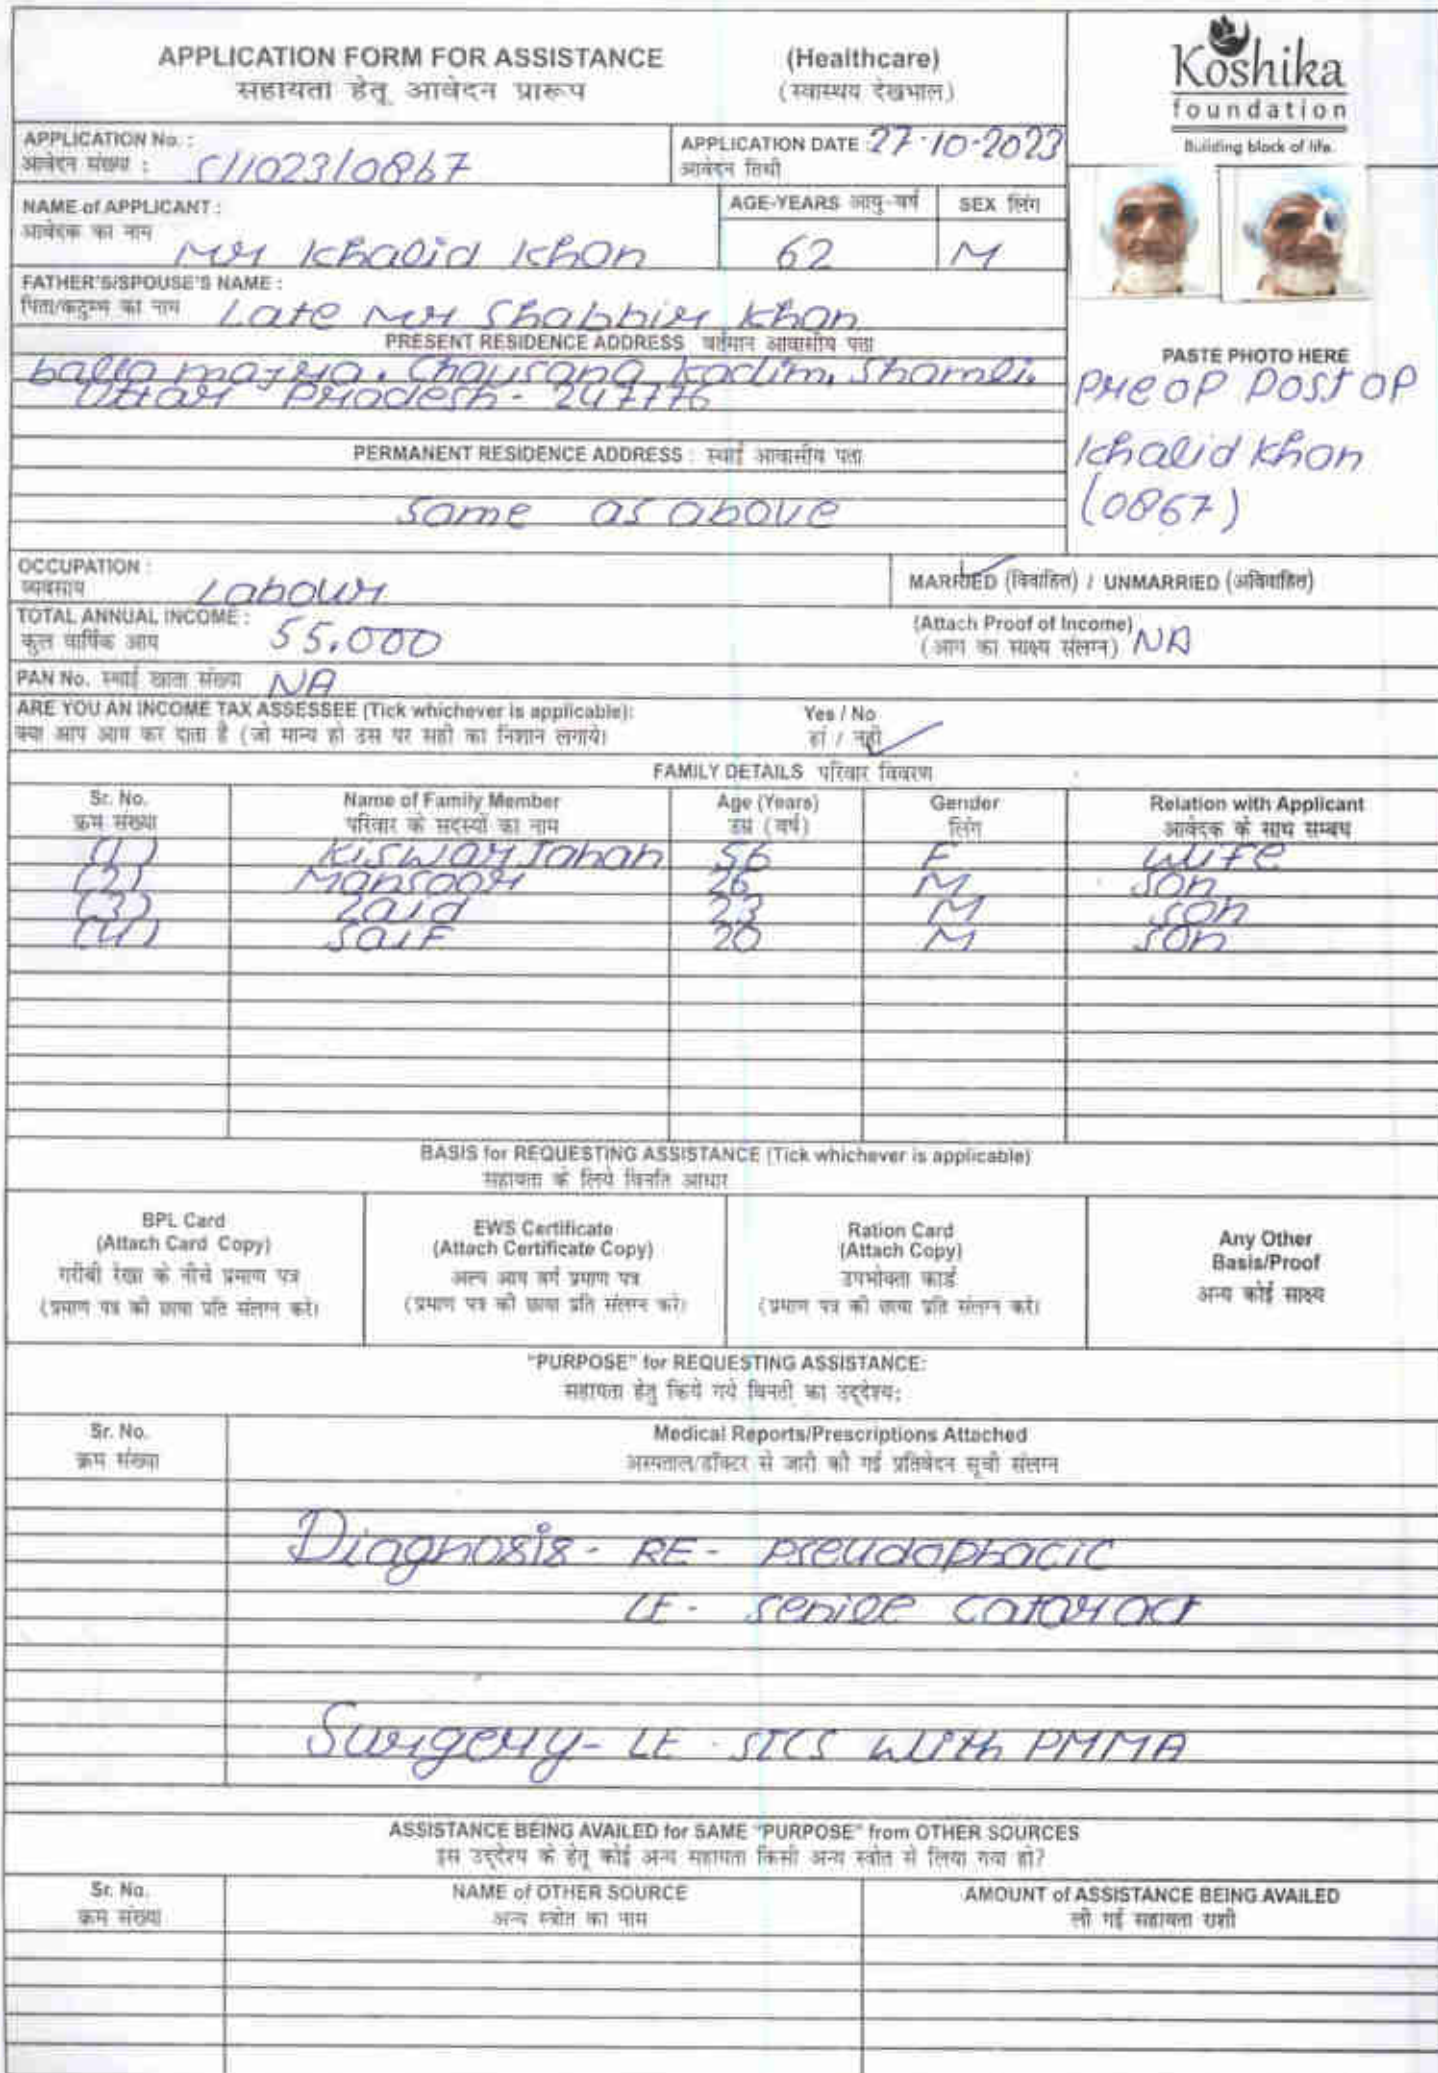 APPLICATION FORM FOR ASSISTANCE (Healthcare)
सहायता हेतू आवेदन प्रारूप (स्वास्थय देखभाल)
Koshika
foundation
Building block of life.
APPLICATION No. :
आवेदन संख्या :
APPLICATION DATE 27-10-2023
आवेदन तिथी
NAME of APPLICANT :
आवेदक का नाम
Mr Khalid Khan
AGE-YEARS आयु-वर्ष
62
SEX लिंग
M
FATHER'S/SPOUSE'S NAME :
पिता/कटुम्ब का नाम Late Mr Shabbir Khan
PRESENT RESIDENCE ADDRESS वर्तमान आवासीय पता
Chausana kadim, Shamli,
Uttar Pradesh - 247776
PERMANENT RESIDENCE ADDRESS : स्थाई आवासीय पता
Same as above
PASTE PHOTO HERE
Pre op Post op
Khalid Khan
(0867)
OCCUPATION :
व्यवसाय Labour
MARRIED (विवाहित) / UNMARRIED (अविवाहित)
TOTAL ANNUAL INCOME :
कुल वार्षिक आय 55,000
(Attach Proof of Income)
(आय का साक्ष्य संलग्न) NA
PAN No. स्थाई खाता संख्या NA
ARE YOU AN INCOME TAX ASSESSEE (Tick whichever is applicable): Yes / No
क्या आप आय कर दाता है (जो मान्य हो उस पर सही का निशान लगाये) हां / नही
FAMILY DETAILS परिवार विवरण
Sr. No. Name of Family Member Age (Years) Gender Relation with Applicant
क्रम संख्या परिवार के सदस्यों का नाम उम्र (वर्ष) लिंग आवेदक के साथ सम्बंध
(1) Kiswar Jahan 56 F wife
(2) Mansoor 26 M son
(3) Zaid 23 M son
(4) Saif 20 M son
BASIS for REQUESTING ASSISTANCE (Tick whichever is applicable)
सहायता के लिये विनति आधार
BPL Card
(Attach Card Copy)
गरीबी रेखा के नीचे प्रमाण पत्र
(प्रमाण पत्र की छाया प्रति संलग्न करें)
EWS Certificate
(Attach Certificate Copy)
अल्प आय वर्ग प्रमाण पत्र
(प्रमाण पत्र की छाया प्रति संलग्न करें)
Ration Card
(Attach Copy)
उपभोक्ता कार्ड
(प्रमाण पत्र की छाया प्रति संलग्न करें)
Any Other
Basis/Proof
अन्य कोई साक्ष्य
"PURPOSE" for REQUESTING ASSISTANCE:
सहायता हेतु किये गये विनती का उद्देश्य:
Sr. No. Medical Reports/Prescriptions Attached
क्रम संख्या अस्पताल/डॉक्टर से जारी की गई प्रतिवेदन सूची संलग्न
Diagnosis - RE - Pseudaphacic
LE - Senile Cataract
Surgery - LE - SICS with PMMA
ASSISTANCE BEING AVAILED for SAME "PURPOSE" from OTHER SOURCES
इस उद्देश्य के हेतू कोई अन्य सहायता किसी अन्य स्त्रोत से लिया गया हो?
Sr. No. NAME of OTHER SOURCE AMOUNT of ASSISTANCE BEING AVAILED
क्रम संख्या अन्य स्त्रोत का नाम ली गई सहायता राशी